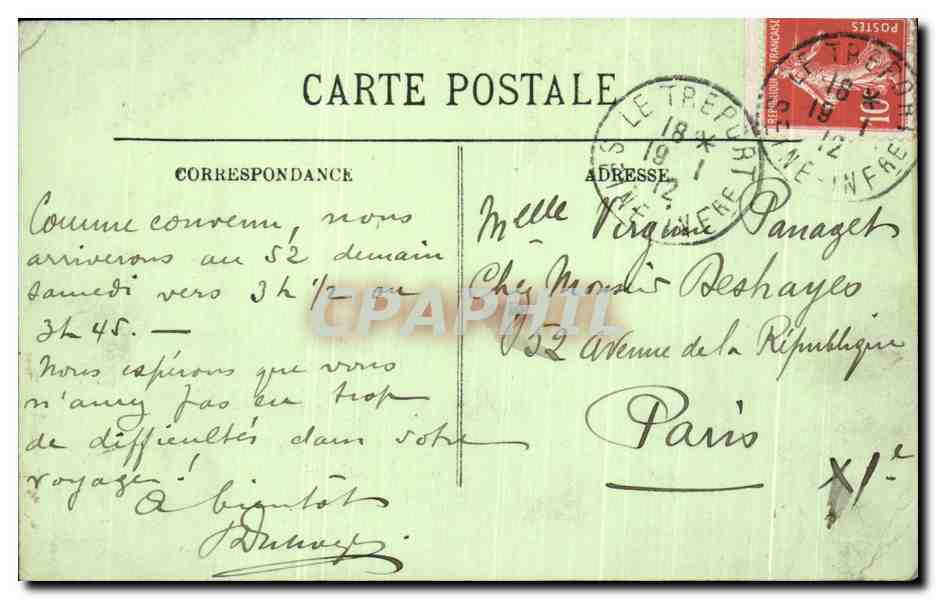 CARTE POSTALE
CORRESPONDANCE
Comme convenu, nous
arriverons au 52 demain
samedi vers 3h 1/2 ou
3h 45. —
Nous espérons que vous
n'aurez pas eu trop
de difficultés dans votre
voyage!
A bientôt
ADRESSE
Melle Virginie Panaget
Chez Monsieur Deshayes
52 Avenue de la République
Paris
XIe
LE TREPORT
18 *
19 1
12
SEINE-INFRE
LE TREPORT
18 *
19 1
12
SEINE-INFRE
POSTES
REPUBLIQUE FRANÇAISE
10
CPAPHIL